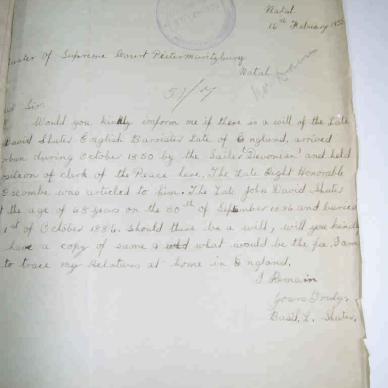 Natal
16th February 19
aster Of Supreme Court Pietermaritzburg
Natal.
Sir.
Would you kindly inform me if there is a will of the Late
David Shuter English Barrister Late of England, arrived
rban during October 1850 by the Sailer "Devonian" and held
position of clerk of the Peace here, The Late Right Honorable
Escombe was articled to him. The Late John David Shuter
t the age of 68 years on the 30th of September 1886 and buried
1st of October 1886. Should there be a will, will you kindly
have a copy of same and what would be the fee. I am
to trace my Relatives at home in England.
I Remain
Yours Truly,
Basil. L. Shuter.